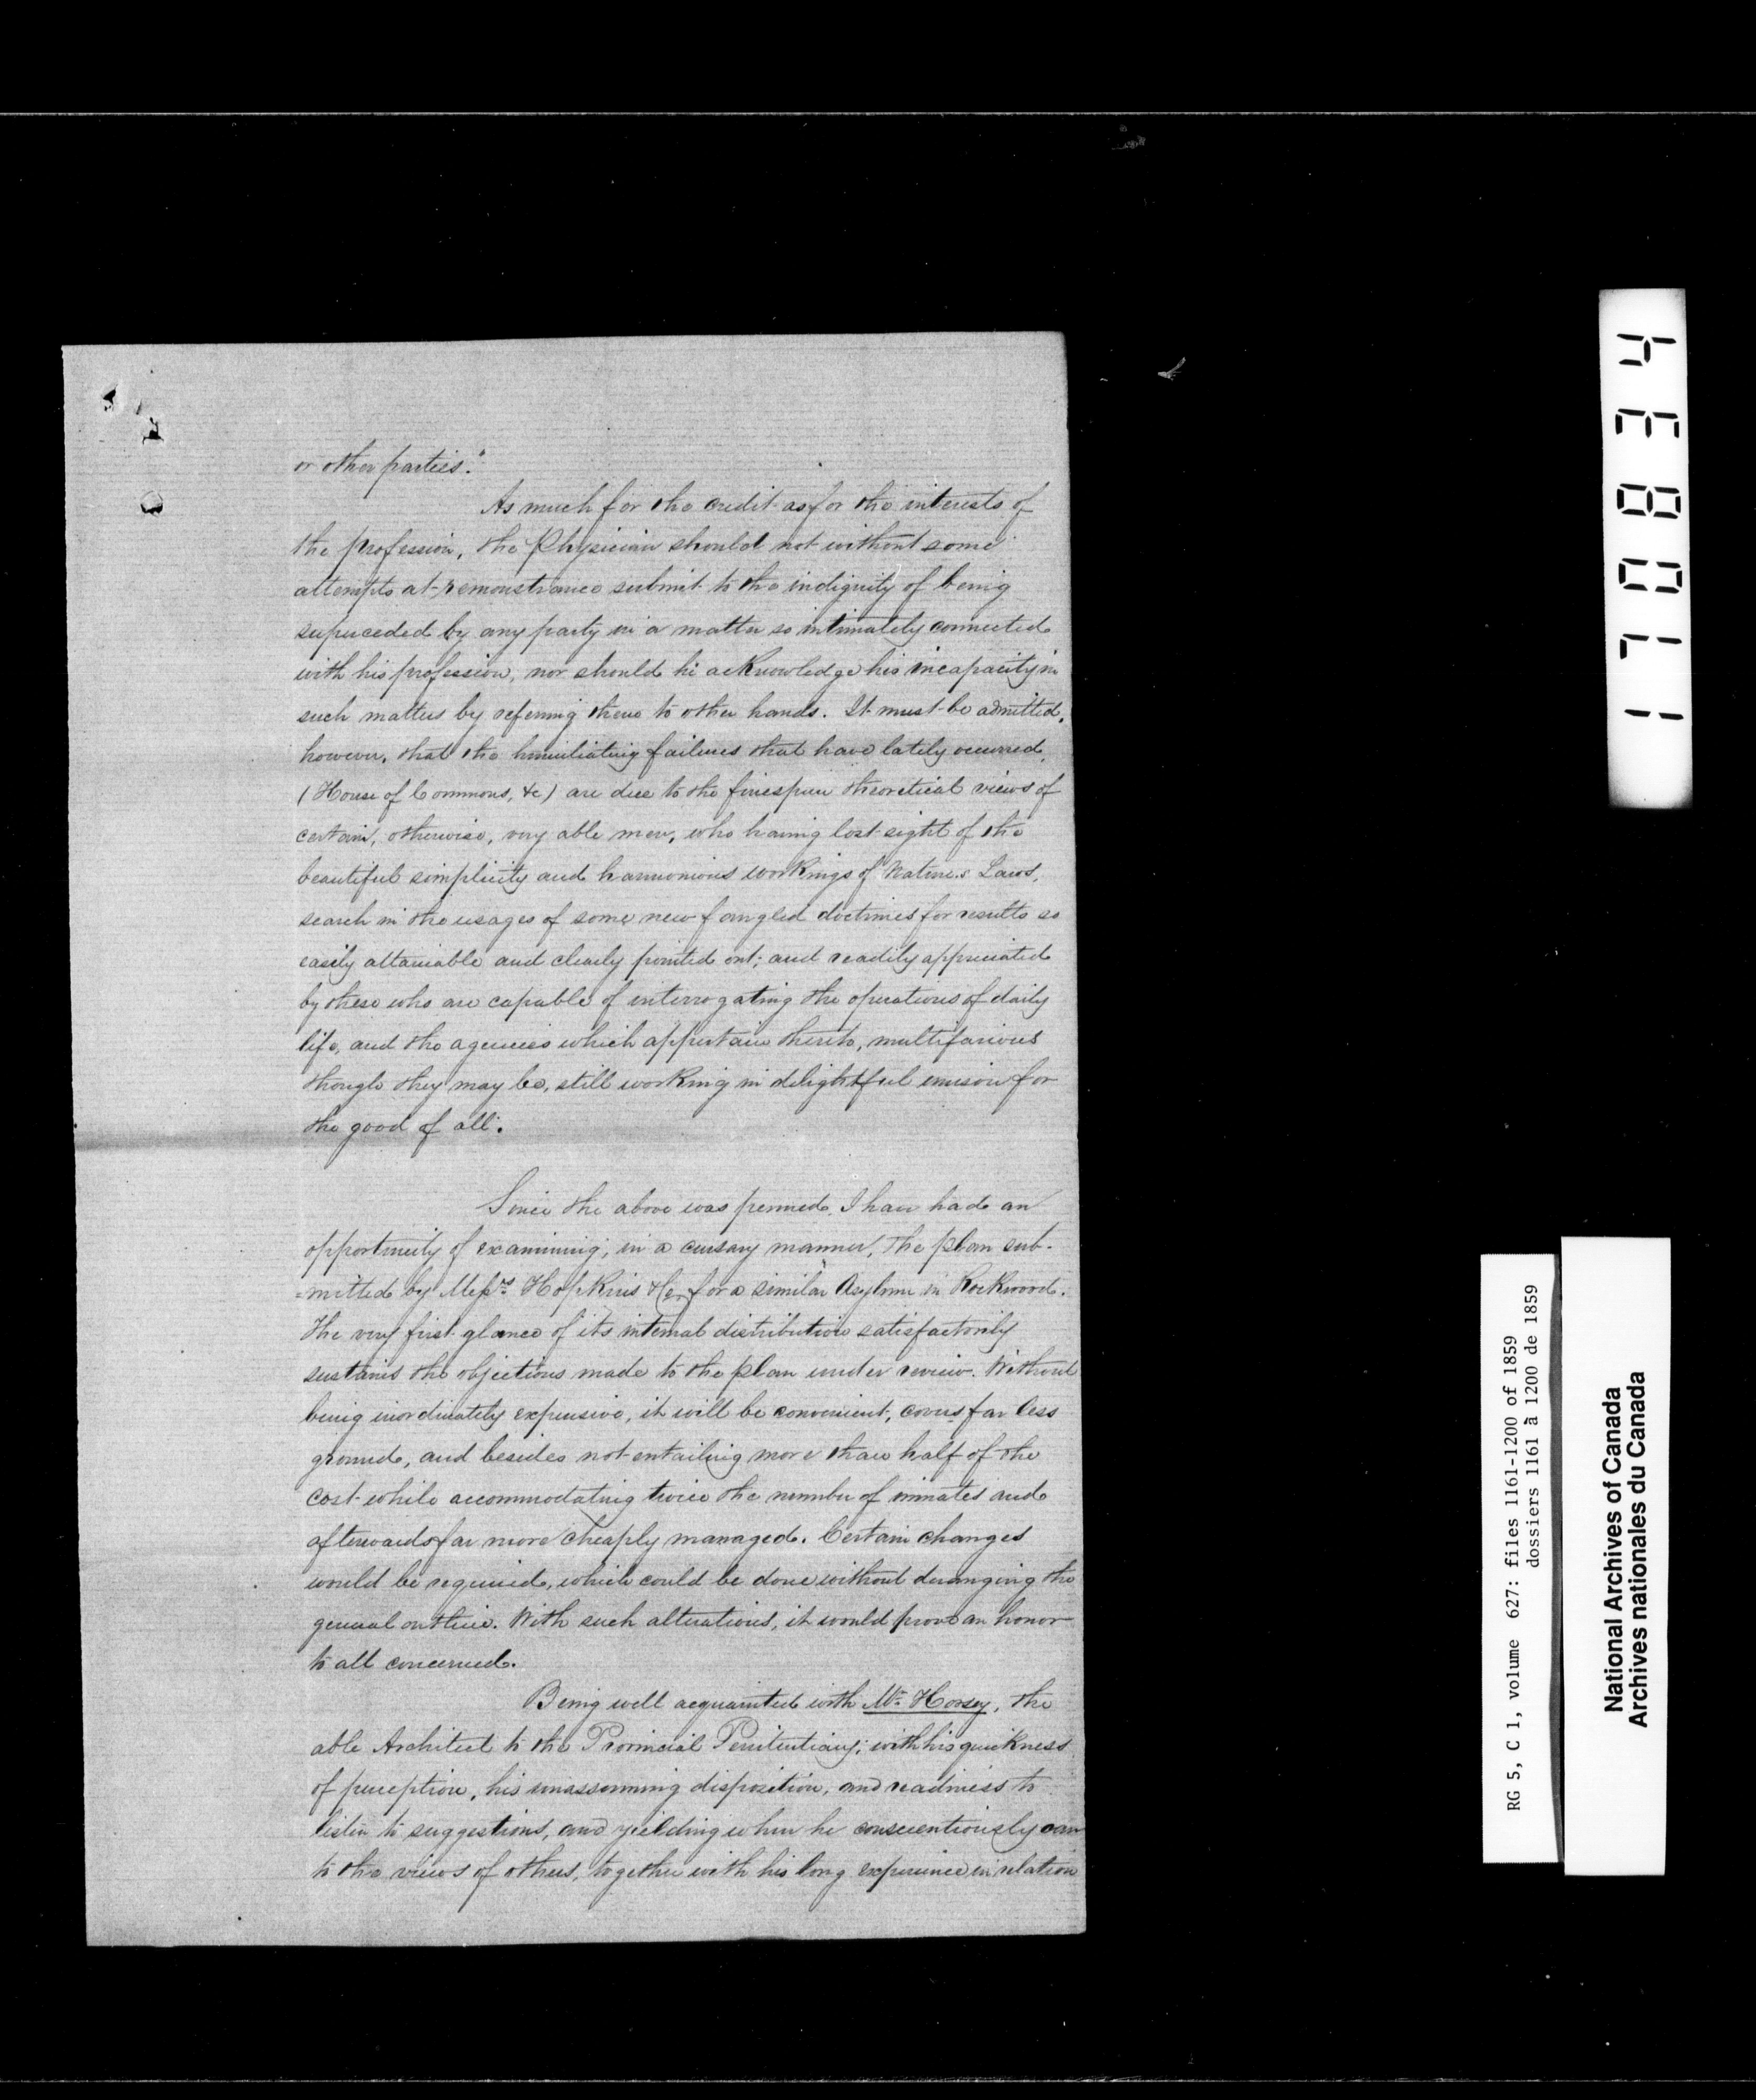 or other parties."
As much for the credit as for the interests of
the profession, the Physician should not without some
attempts at remonstrance submit to the indignity of being
superceded by any party in a matter so intimately connected
with his profession, nor should he acknowledge his incapacity in
such matters by refering them to other hands. It must be admitted,
however, that the humiliating failures that have lately occurred,
(House of Commons, &c) are due to the finespun theoretical views of
certain, otherwise, very able men, who having lost sight of the
beautiful simplicity and harmonious workings of Nature's Laws,
search in the usages of some new fangled doctrines for results so
easily attainable and clearly pointed out; and readily appreciated
by those who are capable of interrogating the operations of daily
life, and the agencies which appertain thereto, multifarious
though they may be, still working in delightful unison for
the good of all.
Since the above was penned, I have had an
opportunity of examining, in a cursary manner, the plan sub-
=mitted by Messrs Hopkins & Co, for a similar Asylum in Rockwood.
The very first glance of its internal distribution satisfactorily
sustains the objections made to the plan under review. Without
being inordinately expensive, it will be convenient, covers far less
ground, and besides not entailing more than half of the
cost while accommodating twice the number of inmates and
afterwards far more cheaply managed. Certain changes
would be required, which could be done without deranging the
general outline. With such alterations, it would prove an honor
to all concerned.
Being well acquainted with Mr. Horsey, the
able Architect to the Provincial Penitentiary; with his quickness
of perception, his unassuming disposition, and readiness to
listen to suggestions, and yielding when he conscientiously can
to the views of others, together with his long experience in relation
1 7 0 8 3 4
RG 5, C 1, volume 627: files 1161-1200 of 1859
dossiers 1161 à 1200 de 1859
National Archives of Canada
Archives nationales du Canada